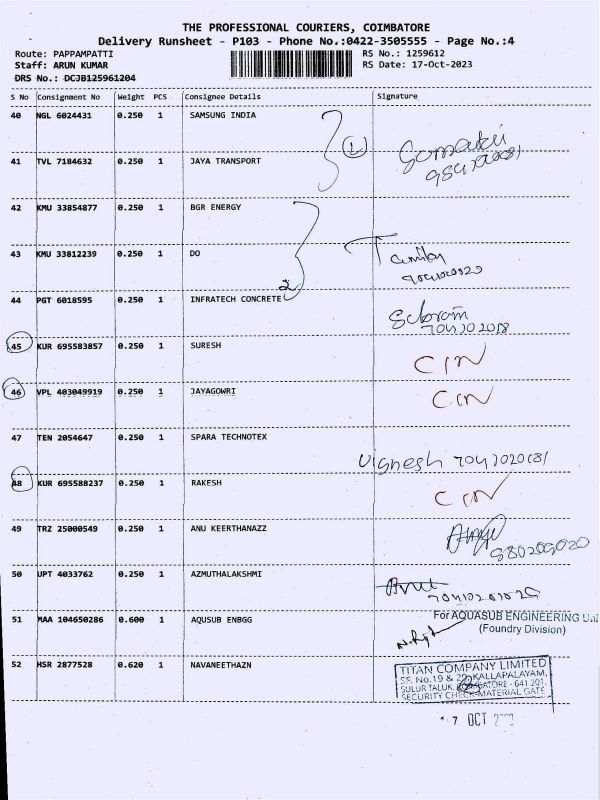 THE PROFESSIONAL COURIERS, COIMBATORE
Delivery Runsheet - P103 - Phone No.:0422-3505555 - Page No.:4
Route: PAPPAMPATTI RS No.: 1259612
Staff: ARUN KUMAR RS Date: 17-Oct-2023
DRS No.: DCJB125961204
S No Consignment No Weight PCS Consignee Details Signature
40 NGL 6024431 0.250 1 SAMSUNG INDIA
1
41 TVL 7184632 0.250 1 JAYA TRANSPORT
42 KMU 33854877 0.250 1 BGR ENERGY
43 KMU 33812239 0.250 1 DO
2
44 PGT 6018595 0.250 1 INFRATECH CONCRETE
45 KUR 695583857 0.250 1 SURESH CIN
46 VPL 403049919 0.250 1 JAYAGOWRI CIN
47 TEN 2054647 0.250 1 SPARA TECHNOTEX
Vignesh
48 KUR 695588237 0.250 1 RAKESH CIN
49 TRZ 25000549 0.250 1 ANU KEERTHANAZZ
50 UPT 4033762 0.250 1 AZMUTHALAKSHMI
51 MAA 104650286 0.600 1 AQUSUB ENBGG For AQUASUB ENGINEERING Uni
(Foundry Division)
52 HSR 2877528 0.620 1 NAVANEETHAZN
TITAN COMPANY LIMITED
SF. No.19 & KALLAPALAYAM,
SULUR TALUK, 641 201.
SECURITY CHECK-MATERIAL GATE
7 OCT